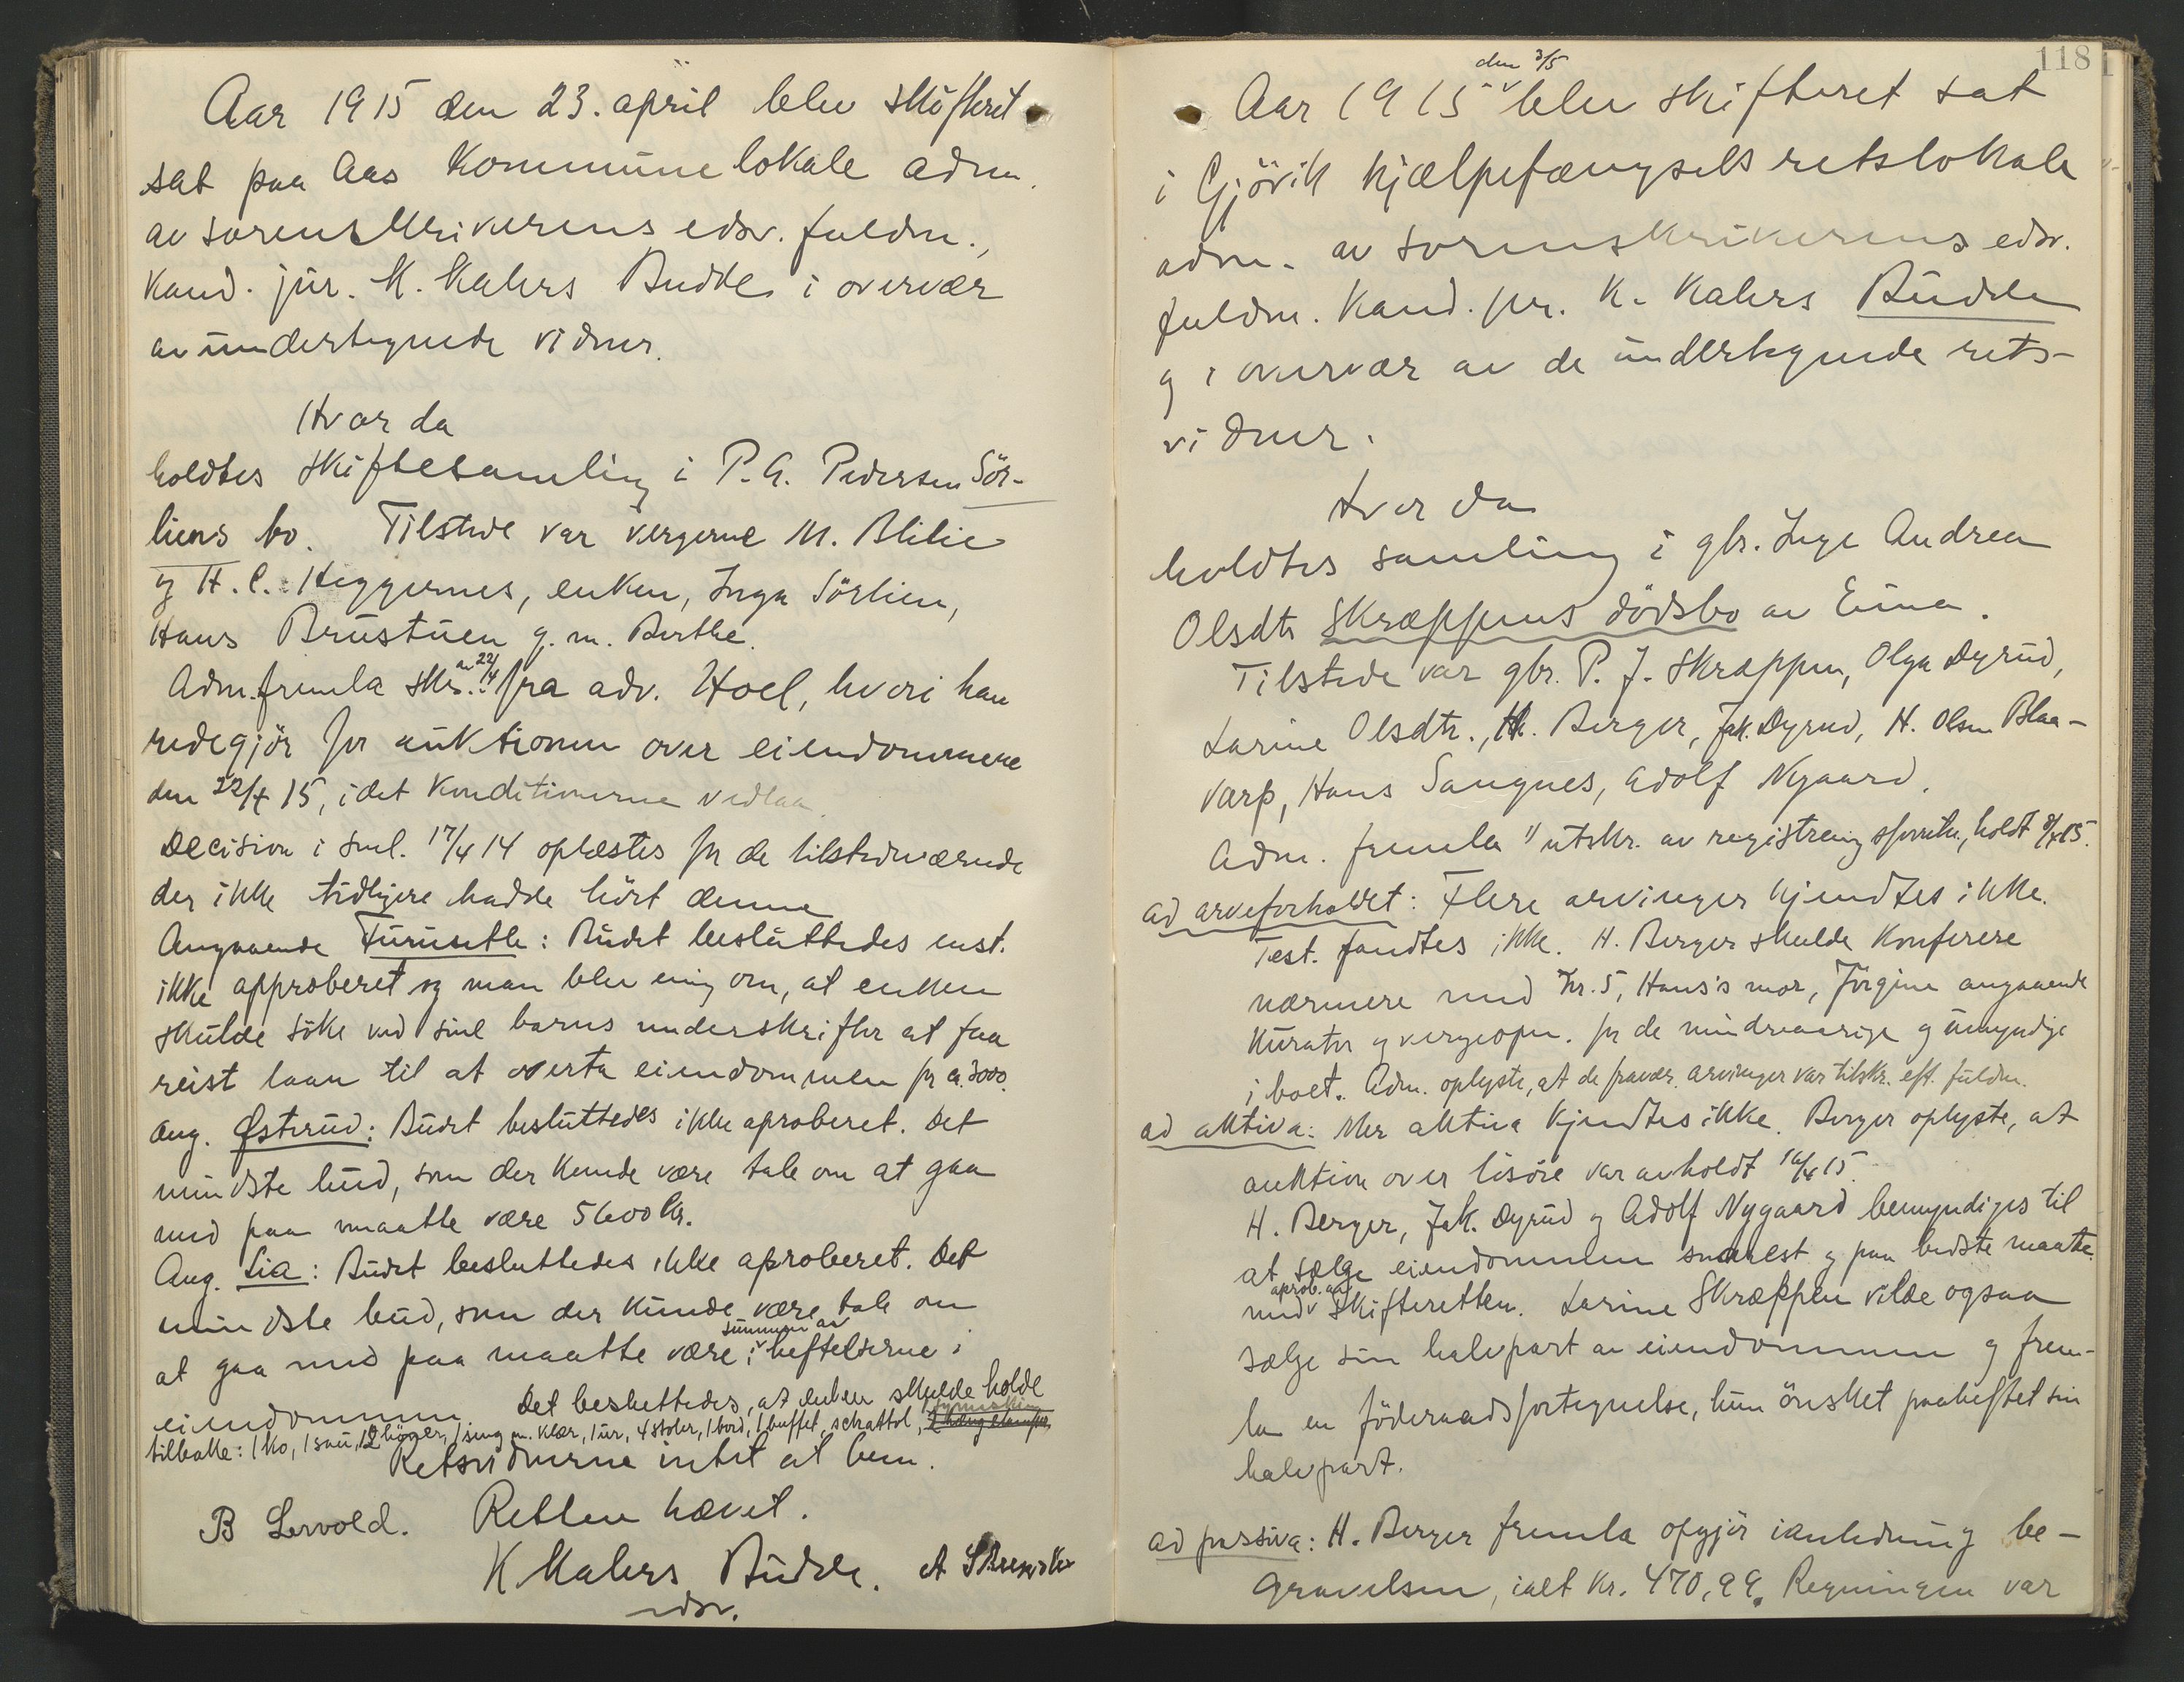 Aar 1915 den 23. april blev skifteret
sat paa Aas Kommunelokale adm.
av sorenskriverens edsv. fuldm.,
kand. jur. K. Kahrs Budde i overvær
av undertegnede vidner.
Hvor da
holdtes skiftesamling i P. A. Pedersen Sör-
liens bo. Tilstede var vergerne M. Blilie
og H. C. Heggernes, enken, Inga Sörlien,
Hans Brustuen g. m. Berthe.
Adm. fremla skr. av 22/4 fra adv. Hoel, hvori han
redegjör for auktionen over eiendommene
den 22/4 15, idet Konditionerne vedlaa
Decision i sml. 17/4 14 oplæstes for de tilstedeværende
der ikke tidligere hadde hört denne
Angaaende Furusetle: Budet besluttedes enst.
ikke approberet og man blev enig om, at enken
skulde söke ved sine barns underskrifter at faa
reist laan til at overta eiendommen for ca. 3000.
Ang. Østerud: Budet besluttedes ikke aproberet. Det
mindste bud, som der kunde være tale om at gaa
med paa maatte være 5600 kr.
Ang. Lia: Budet besluttedes ikke aproberet. Det
mindste bud, som der kunde være tale om
at gaa med paa maatte være summen av heftelserne i
eiendommen. Det besluttedes, at enken skulde holde
tilbake: 1 ko, 1 sau, 12 höner, 1 seng m. klær, 1 ur, 4 stoler, 1 bord, 1 buffet, schattol, symaskin
Retsvidnerne intet at bem.
Retten hævet.
B Lervold.
K Kahrs Budde.
edsv.
118
den 3/5
Aar 1915 blev skifteret sat
i Gjövik hjælpefængsels retslokale
adm. av sorenskriverens edsv.
fuldm. kand. jur. K. Kahrs Budde
og i overvær av de undertegnede rets-
vidner.
Hvor da
holdtes samling i gbr. Inge Andrea
Olsdtr Skræppens dödsbo av Eina.
Tilstede var gbr. P. J. Skræppen, Olga Dyrud,
Larine Olsdtr., H. Berger, Jak. Dyrud, H. Olsen Blaa-
varp, Hans Sangnes, Adolf Nygaard.
Adm. fremla 1) utskr. av registreringsforretn., holdt 8/4 15.
ad arveforholdet: Flere arvinger kjendtes ikke.
Test. fandtes ikke. H. Berger skulde konferere
nærmere med Nr. 5, Hans's mor, Jörgine angaaende
Kurator og vergeopn. for de mindreaarige og umyndige
i boet. Adm. oplyste, at de fravær. arvinger var tilskr. eft. fuldm.
ad aktiva: Mer aktiva kjendtes ikke. Berger oplyste, at
auktion over lösöre var avholdt 16/4 15.
H. Berger, Jak. Dyrud og Adolf Nygaard bemyndiges til
at sælge eiendommen snarest og paa bedste maate
med aprob. av skifteretten. Larine Skræppen vilde ogsaa
sælge sin halvpart av eiendommen og frem-
la en föderaadsfortegnelse, hun önsket paaheftet sin
halvpart.
ad passiva: H. Berger fremla opgjör i anledning be-
gravelsen, ialt kr. 470,99. Regningen var